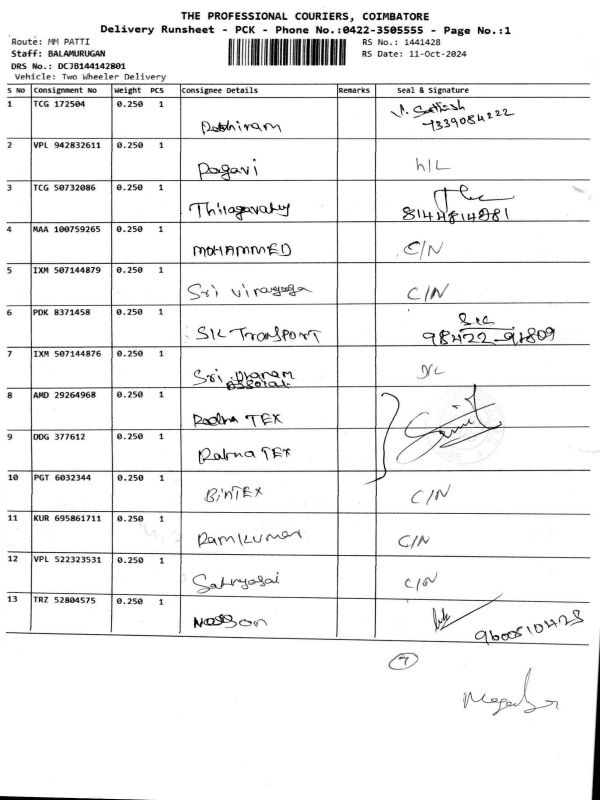 THE PROFESSIONAL COURIERS, COIMBATORE
Delivery Runsheet - PCK - Phone No.:0422-3505555 - Page No.:1
Route: MM PATTI
RS No.: 1441428
Staff: BALAMURUGAN
RS Date: 11-Oct-2024
DRS No.: DCJB144142801
Vehicle: Two Wheeler Delivery
S No Consignment No Weight PCS Consignee Details Remarks Seal & Signature
1 TCG 172504 0.250 1 V. Sathish
7339084222
2 VPL 942832611 0.250 1 Ragavi
3 TCG 50732086 0.250 1 Thilagavathy 8144814981
4 MAA 100759265 0.250 1 MOHAMMED C/N
5 IXM 507144879 0.250 1 Sri Vinayaga C/N
6 PDK 8371458 0.250 1 SK TRANSPORT
7 IXM 507144876 0.250 1 Sri
8 AMD 29264968 0.250 1 TEX
9 DDG 377612 0.250 1 Ratna TEX
10 PGT 6032344 0.250 1 BINTEX C/N
11 KUR 695861711 0.250 1 Ramkumar C/N
12 VPL 522323531 0.250 1 Sathyasai C/N
13 TRZ 52804575 0.250 1
7